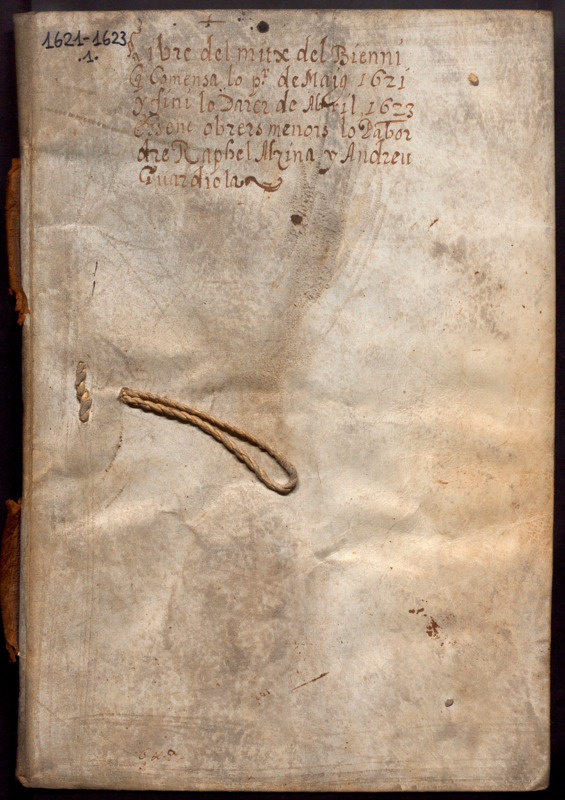 1621-1623
.1.
Libre del mitx del Bienni
q̃ Comensa lo pʳ de Maig 1621
y fini lo Darer de Abril 1623
Essent obrers menors lo Dabor
dre Raphel Alzina y Andreu
Guardiola